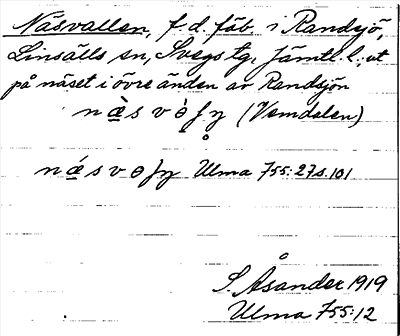 Näsvallen, f. d. fäb. i Randsjö,
Linsälls sn, Svegs tg, Jämtl. l.; ut
på näset i övre änden av Randsjön
(Vemdalen)
Ulma 755:27 s. 101
S. Åsander 1919
Ulma 755:12